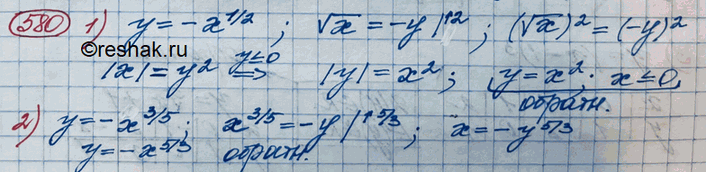 580 1) y = -x^{1/2}; √x = -y |↑2; (√x)^2 = (-y)^2
©reshak.ru
|x| = y^2 y≤0 ⟹ |y| = x^2; y = x^2; x ≤ 0,
обратн.
2) y = -x^{3/5}; x^{3/5} = -y |↑5/3; x = -y^{5/3}
y = -x^{5/3} обратн.